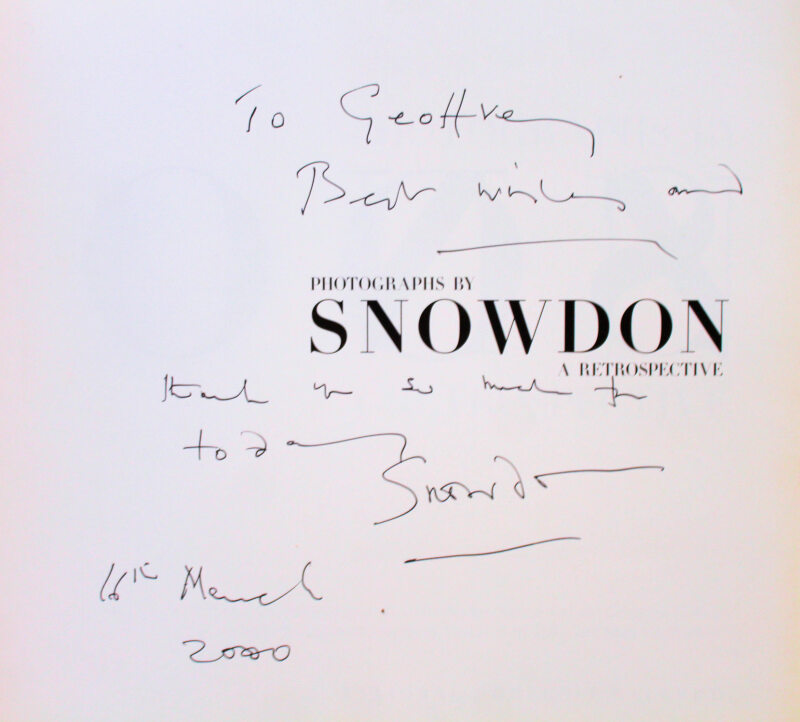 To Geoffrey
Best wishes and
PHOTOGRAPHS BY
SNOWDON
A RETROSPECTIVE
thank you so much for
today
Snowdon
16th March
2000